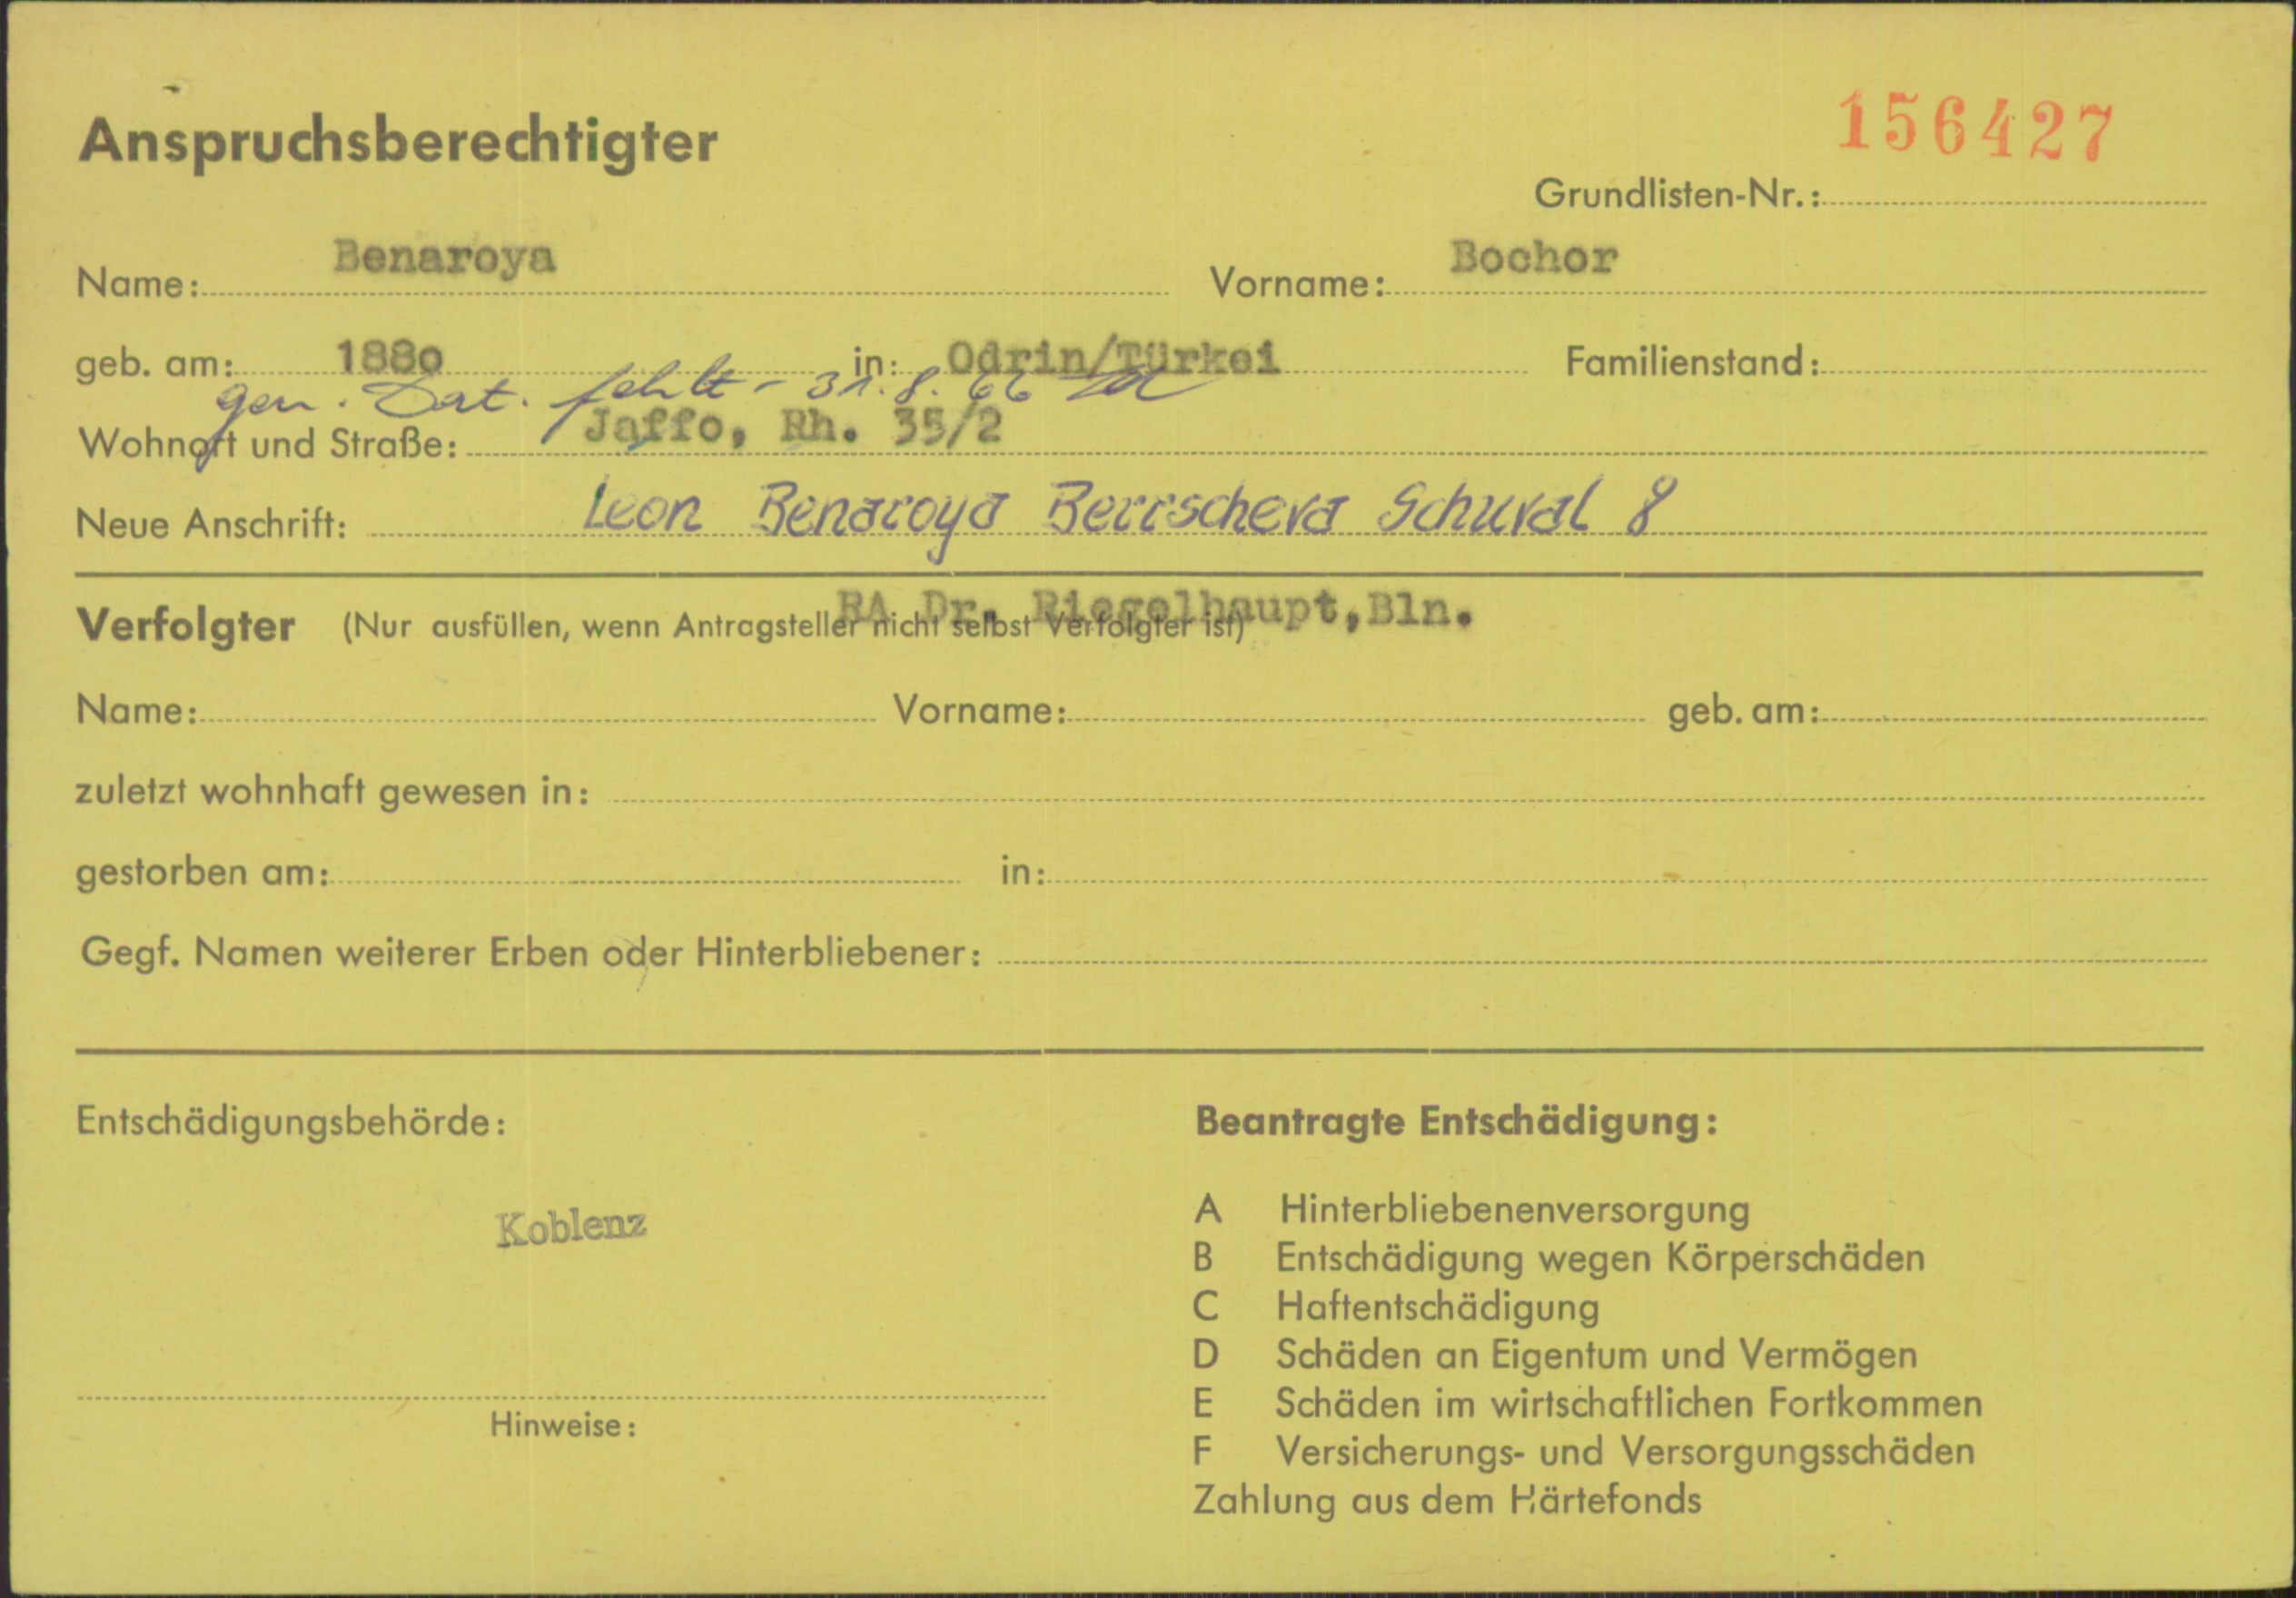 Anspruchsberechtigter
156427
Grundlisten-Nr.:
Name: Benaroya Vorname: Bochor
geb. am: 1880 in: Odrin/Türkei Familienstand:
gen. Dat. fehlt - 31.8.66
Wohnort und Straße: Jaffo, Rh. 35/2
Neue Anschrift: Leon Benaroya Berrscheva Schuval 8
RA Dr. Riegelhaupt, Bln.
Verfolgter (Nur ausfüllen, wenn Antragsteller nicht selbst Verfolgter ist)
Name: Vorname: geb. am:
zuletzt wohnhaft gewesen in:
gestorben am: in:
Gegf. Namen weiterer Erben oder Hinterbliebener:
Entschädigungsbehörde:
Koblenz
Hinweise:
Beantragte Entschädigung:
A Hinterbliebenenversorgung
B Entschädigung wegen Körperschäden
C Haftentschädigung
D Schäden an Eigentum und Vermögen
E Schäden im wirtschaftlichen Fortkommen
F Versicherungs- und Versorgungsschäden
Zahlung aus dem Härtefonds